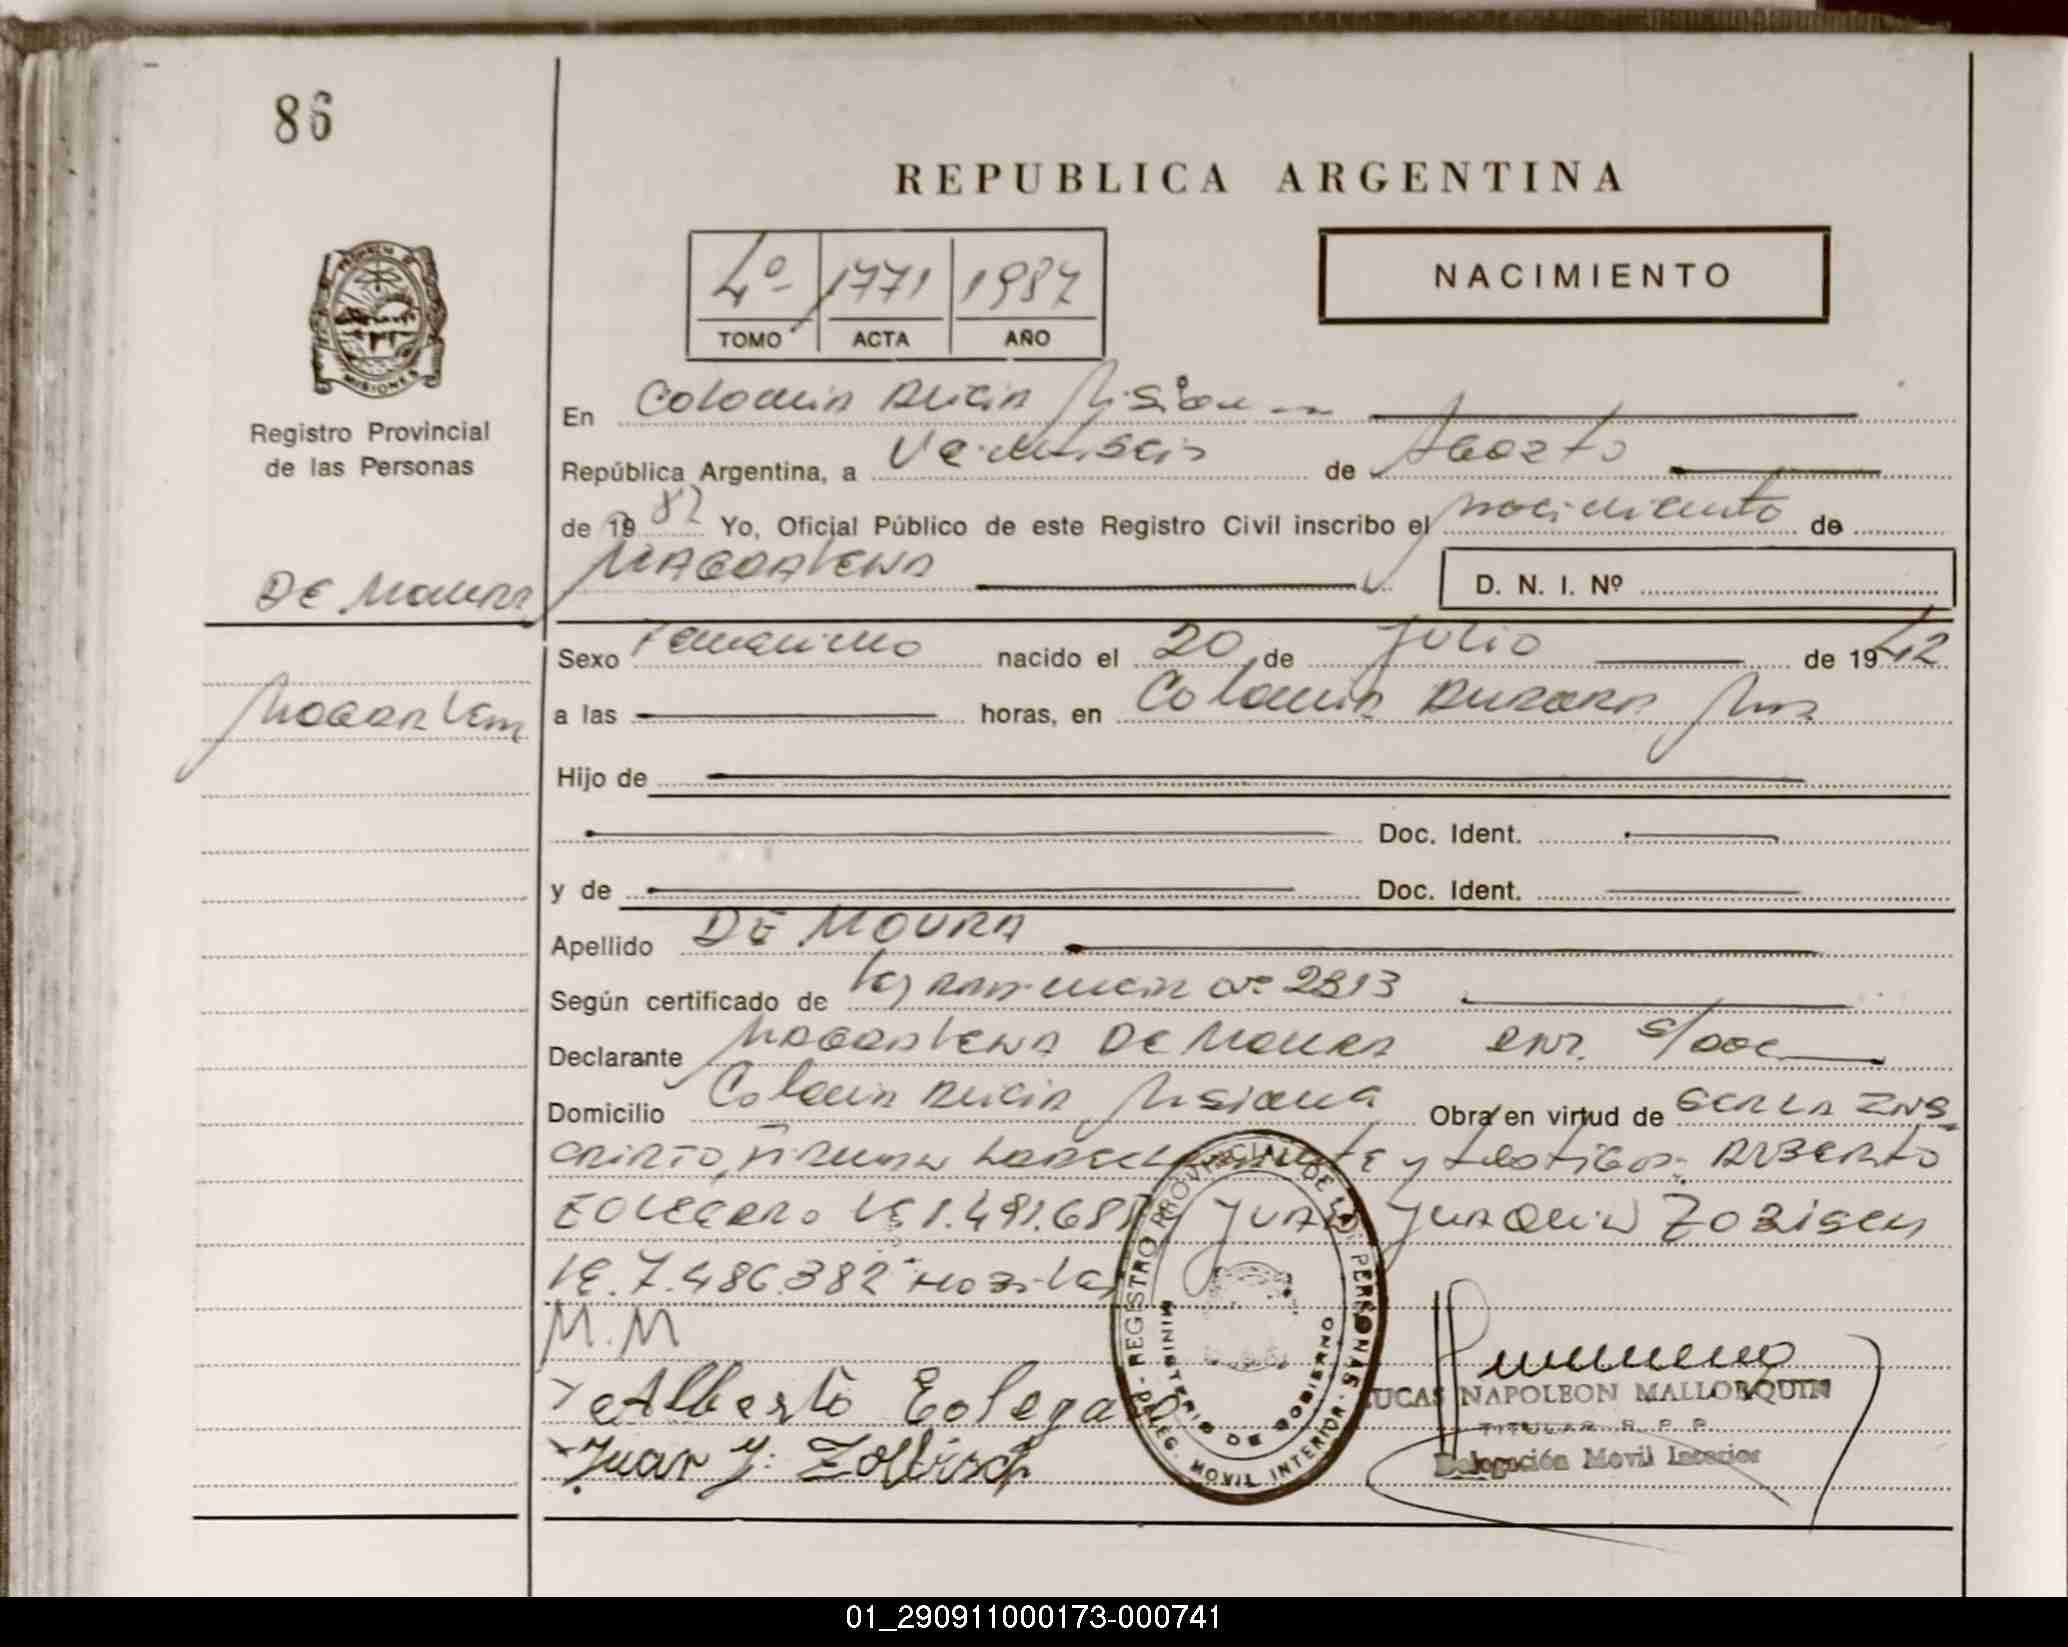 86
REPUBLICA ARGENTINA
4º 1771 1987
TOMO ACTA AÑO
NACIMIENTO
PROVINCIA DE
MISIONES
Registro Provincial
de las Personas
En Colonia Alicia Misiones
República Argentina, a Veintiseis de Agosto
de 1987 Yo, Oficial Público de este Registro Civil inscribo el nacimiento de
De Moura Magdalena
D. N. I. Nº
Magdalena
Sexo Femenino nacido el 20 de Julio de 1942
a las horas, en Colonia Aurora Mns
Hijo de
Doc. Ident.
y de Doc. Ident.
Apellido DE MOURA
Según certificado de nº 2813
Declarante Magdalena De Moura s/doc
Domicilio Colonia Alicia Misiones Obra en virtud de
y testigos: Alberto
LE 1.491.685 y Juan Juaquin Zobisch
LE. 7.486.382
M.M
Alberto Eolegaro
Juan J. Zolbisch
REGISTRO PROVINCIAL DE LAS PERSONAS
MINISTERIO DE GOBIERNO
DELEG. MOVIL INTERIOR
LUCAS NAPOLEON MALLORQUIN
TITULAR R. P. P.
Delegación Movil Interior
01_290911000173-000741